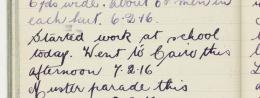 6 yds wide. about 8 men in
each hut. 6-2-16.
Started work at school
today. Went to Cairo this
afternoon 7-2-16
Muster parade this